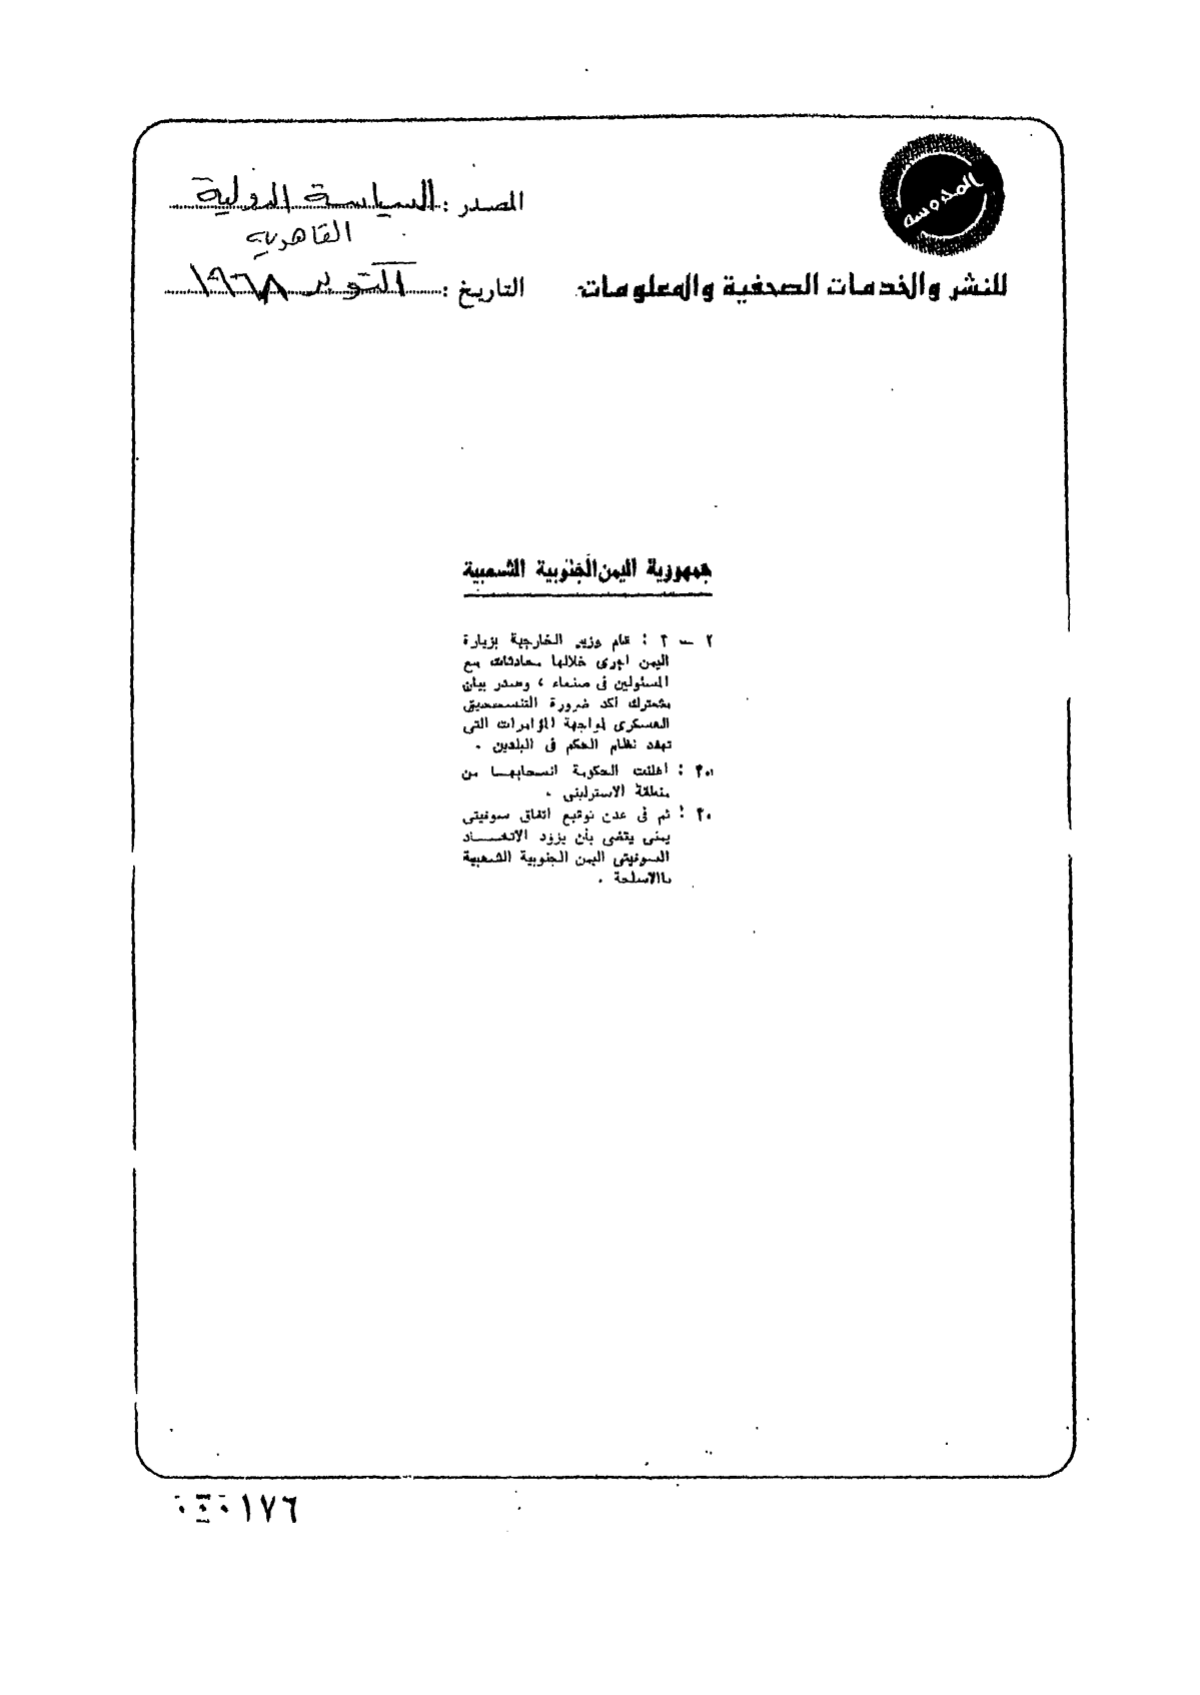 المحروسة
للنشر والخدمات الصحفية والمعلومات
المصدر : السياسة الدولية
القاهرية
التاريخ : اكتوبر ١٩٦٨
جمهورية اليمن الجنوبية الشعبية
٢ — ٢ : قام وزير الخارجية بزيارة
اليمن اجرى خلالها محادثات مع
المسئولين فى صنعاء ، وصدر بيان
مشترك أكد ضرورة التنسيق
العسكرى لمواجهة المؤامرات التى
تهدد نظام الحكم فى البلدين .
أعلنت الحكومة انسحابها من
منطقة الاسترلينى .
تم فى عدن توقيع اتفاق سوفيتى
يمنى يقضى بأن يزود الاتحاد
السوفيتى اليمن الجنوبية الشعبية
بالاسلحة .
١٧٦